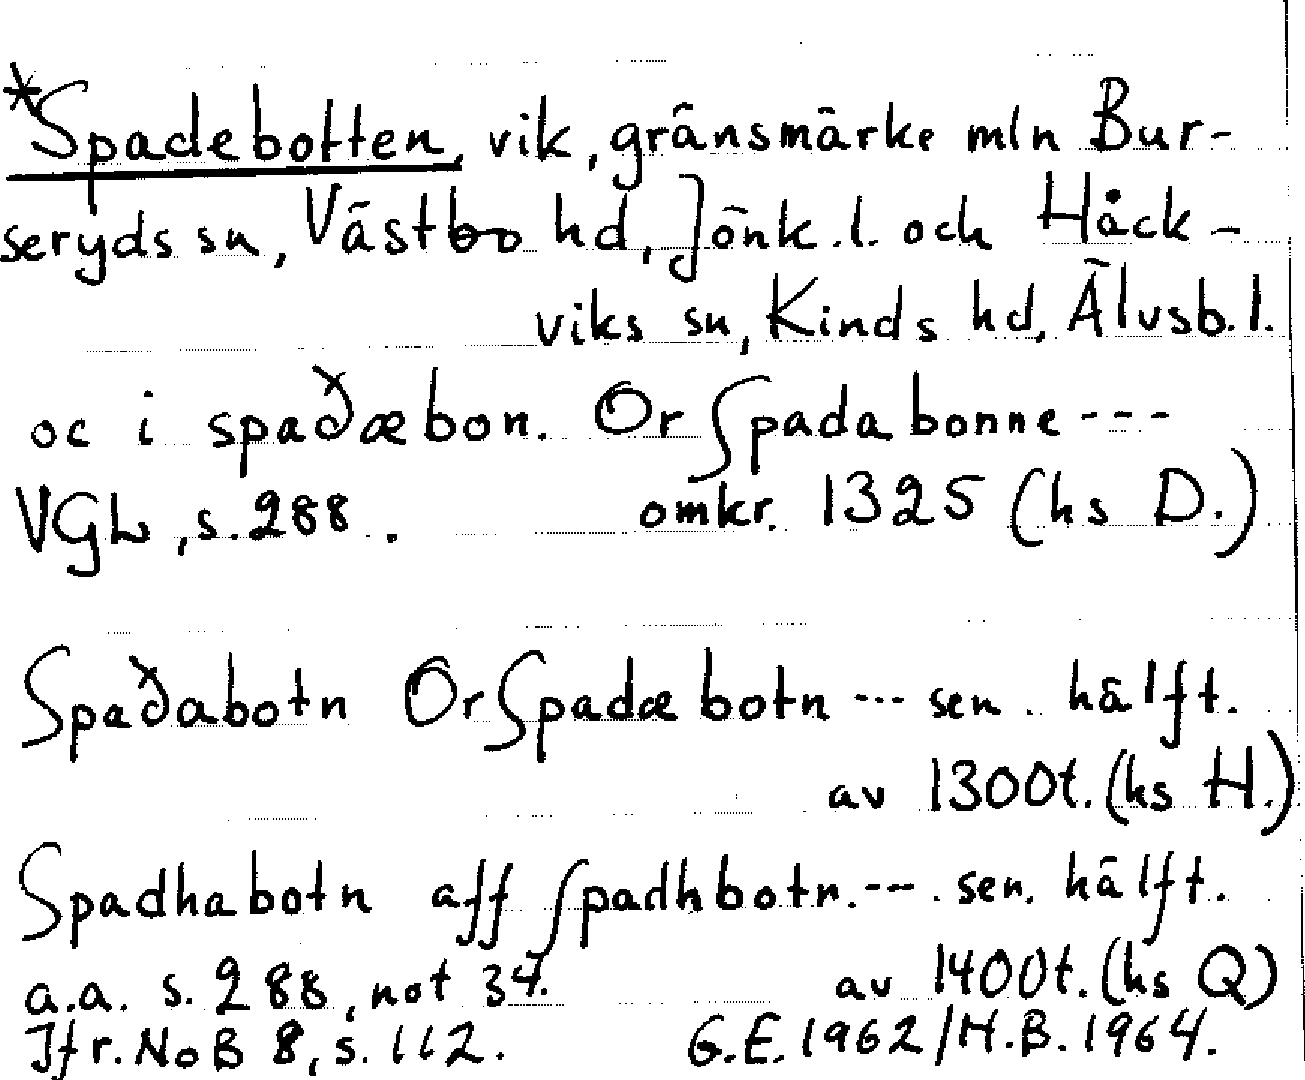 *Spadebotten, vik, gränsmärke mln Bur-
seryds sn, Västbo hd, Jönk.l. och Håck-
viks sn, Kinds hd, Älvsb.l.
oc i spaðæbon. Or Spada bonne ---
VGL, s. 288. omkr. 1325 (hs D.)
Spaðabotn Or Spadæ botn --- sen. hälft.
av 1300t. (hs H.)
Spadhabotn aff Spadhbotn. --- . sen. hälft.
a.a. s. 288, not 34. av 1400t. (hs Q)
Jfr. NoB 8, s. 112. G.E. 1962/H.B. 1964.